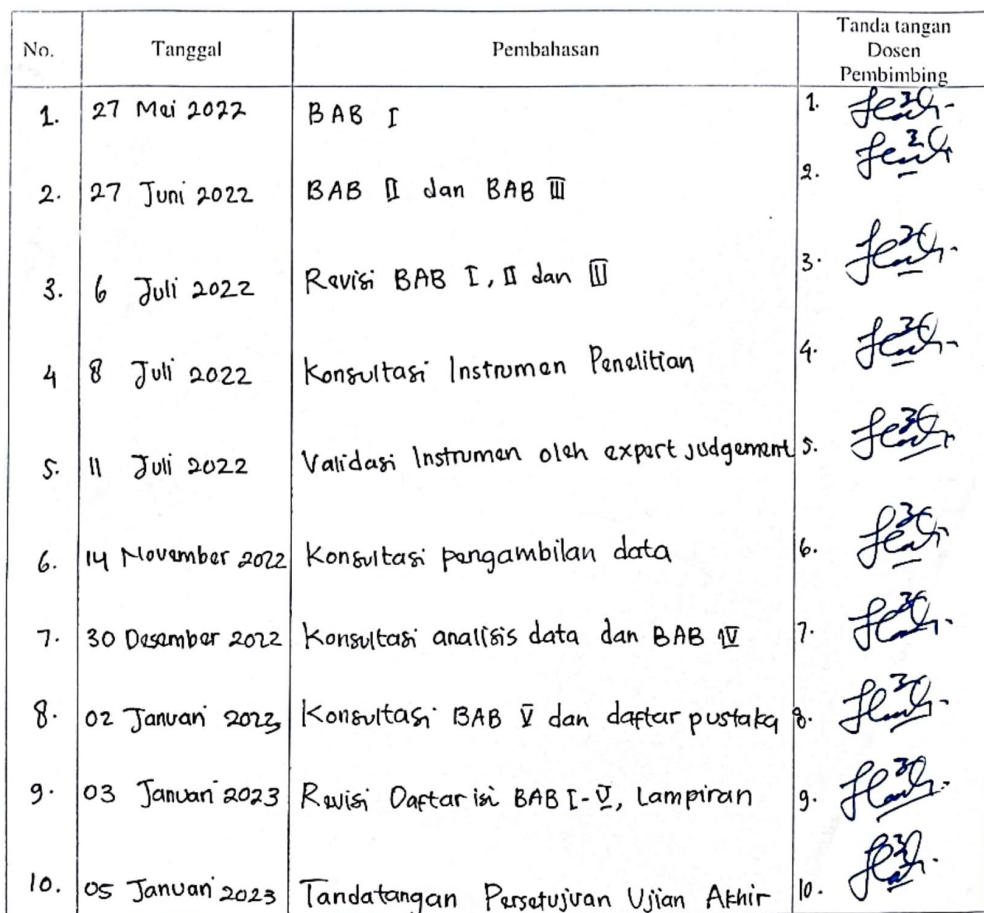 No. Tanggal Pembahasan Tanda tangan
Dosen
Pembimbing
1. 27 Mei 2022 BAB I 1.
2. 27 Juni 2022 BAB II dan BAB III 2.
3. 6 Juli 2022 Revisi BAB I, II dan III 3.
4 8 Juli 2022 Konsultasi Instrumen Penelitian 4.
5. 11 Juli 2022 Validasi Instrumen oleh expert judgement 5.
6. 14 November 2022 Konsultasi pengambilan data 6.
7. 30 Desember 2022 Konsultasi analisis data dan BAB IV 7.
8. 02 Januari 2023 Konsultasi BAB V dan daftar pustaka 8.
9. 03 Januari 2023 Revisi Daftar isi BAB I-V, Lampiran 9.
10. 05 Januari 2023 Tandatangan Persetujuan Ujian Akhir 10.